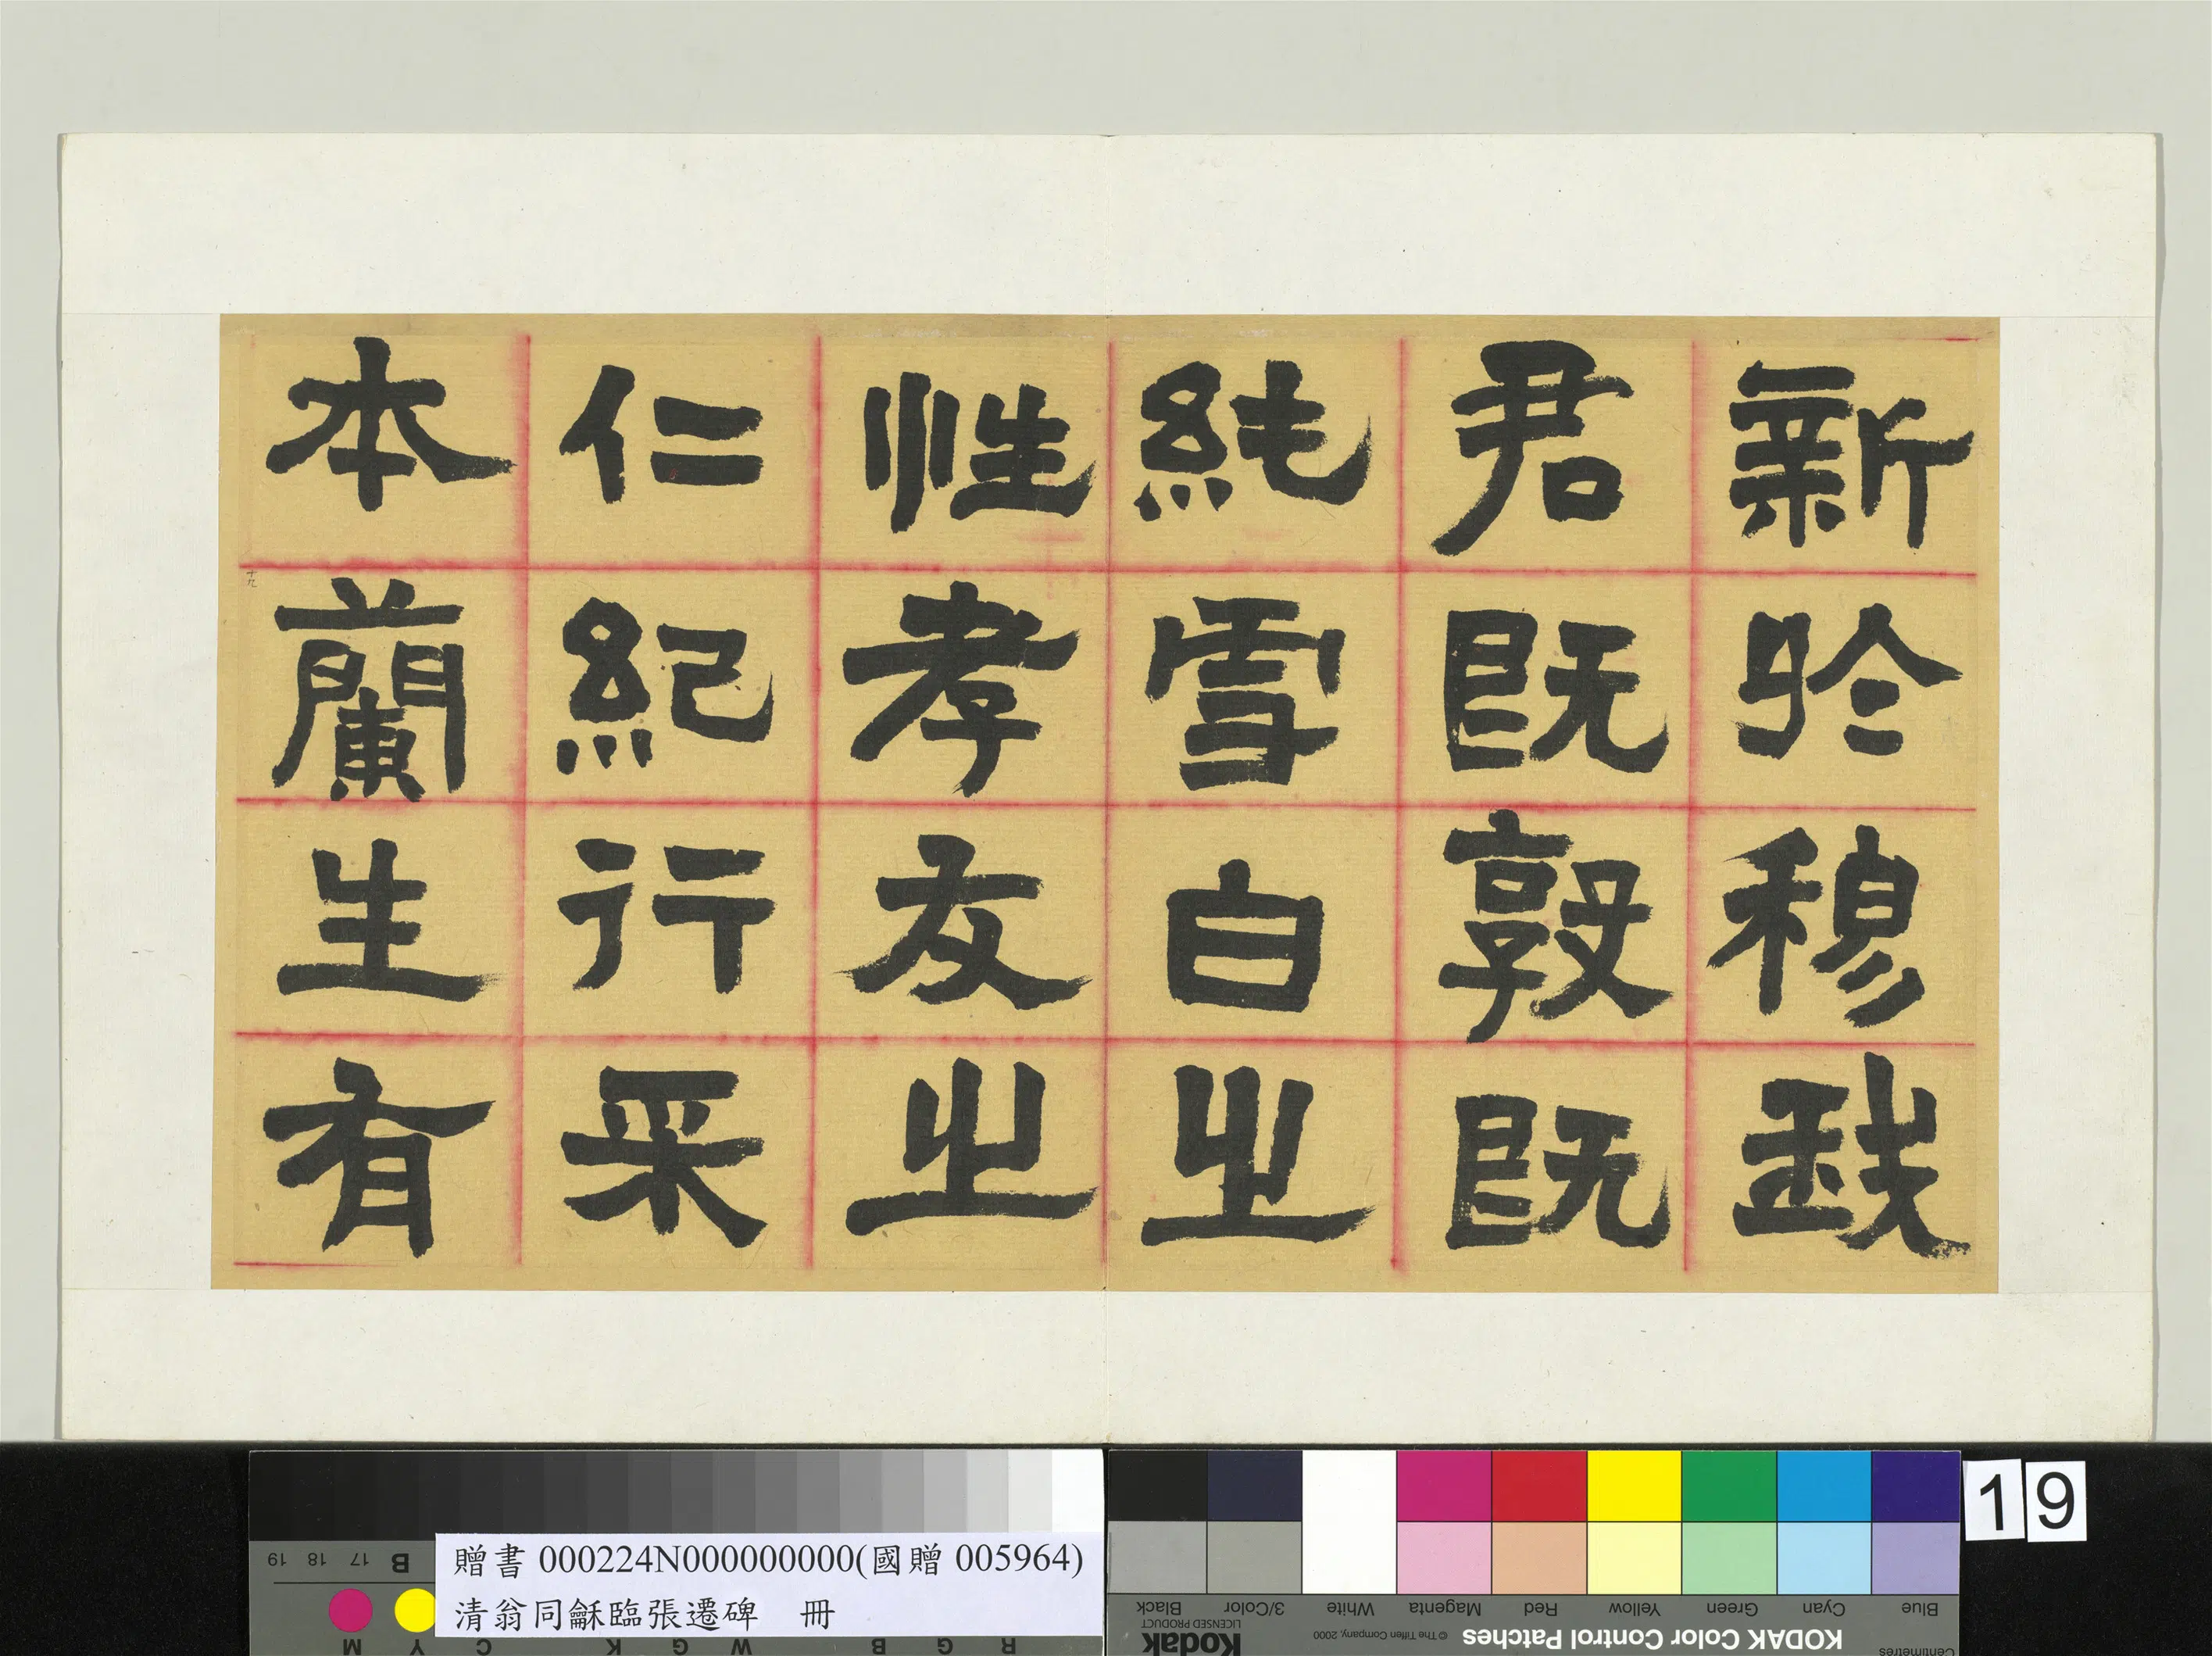 新於穆我
君既敦既
純雪白之
性孝友之
仁紀行来
本蘭生有
十九
19
贈書 000224N000000000(國贈 005964)
清翁同龢臨張遷碑 冊
KODAK Color Control Patches
© The Tiffen Company, 2000
Kodak
LICENSED PRODUCT
Blue Cyan Green Yellow Red Magenta White 3/Color Black
Centimetres
R G B W G K C Y M
B 17 18 19